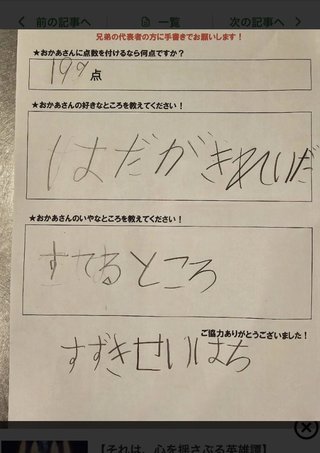 前の記事へ 一覧 次の記事へ
兄弟の代表者の方に手書きでお願いします！
★おかあさんに点数を付けるなら何点ですか？
199点
★おかあさんの好きなところを教えてください！
はだがきれいだ
★おかあさんのいやなところを教えてください！
すてるところ
ご協力ありがとうございました！
すずきせいはち
【それは、心を揺さぶる英雄譚】